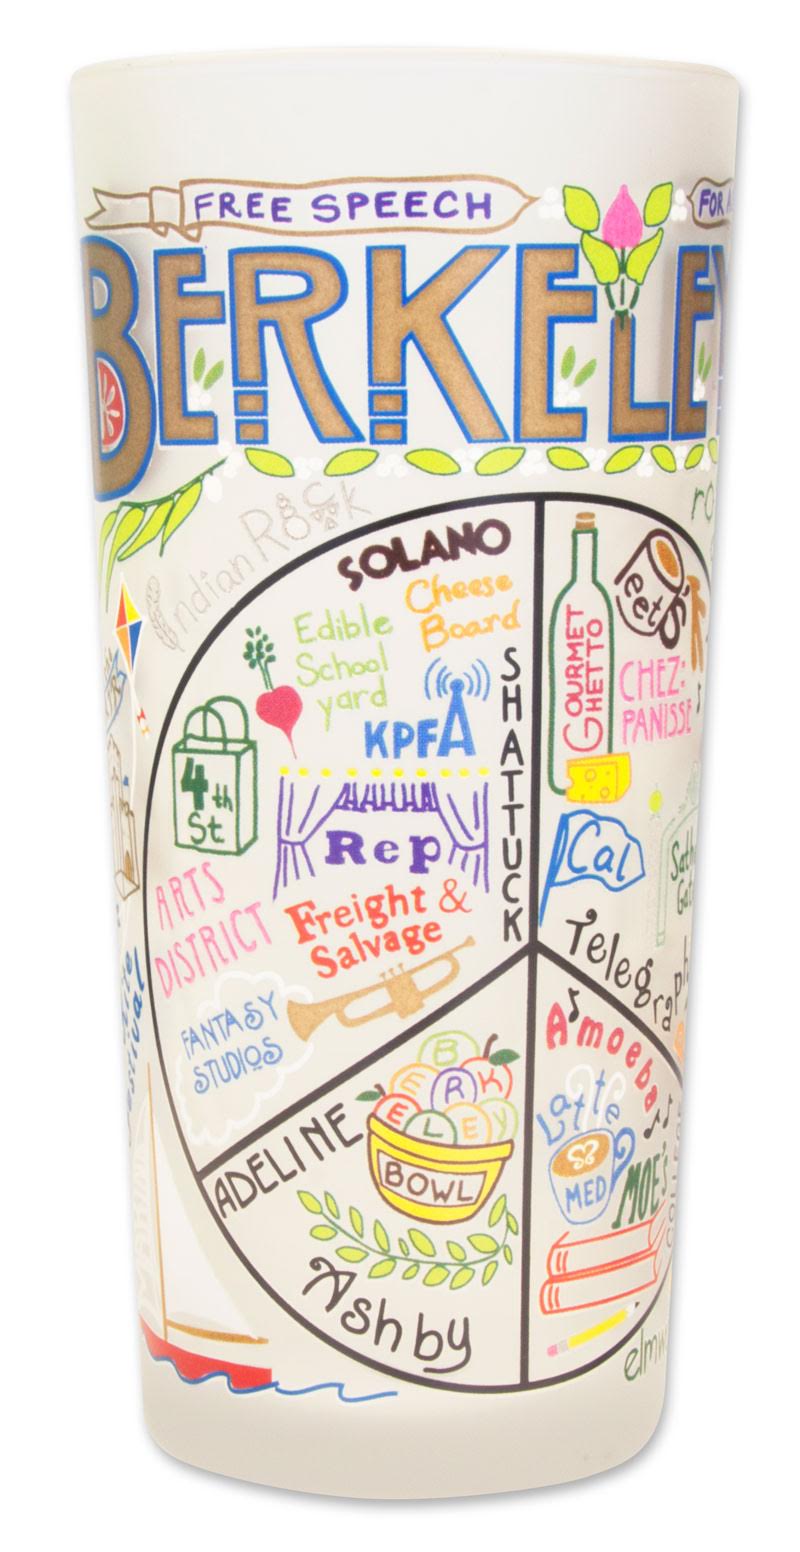 FREE SPEECH
FOR
BERKELEY
Indian Rock
SOLANO
Cheese
Board
Edible
School
yard
KPFA
SHATTUCK
4th
St
Rep
ARTS
DISTRICT
Freight &
Salvage
FANTASY
STUDIOS
GOURMET
GHETTO
Peet's
CHEZ
PANISSE
Cal
Telegraph
ADELINE
BERKELEY
BOWL
Ashby
Amoeba
Latte
MED
MOE'S